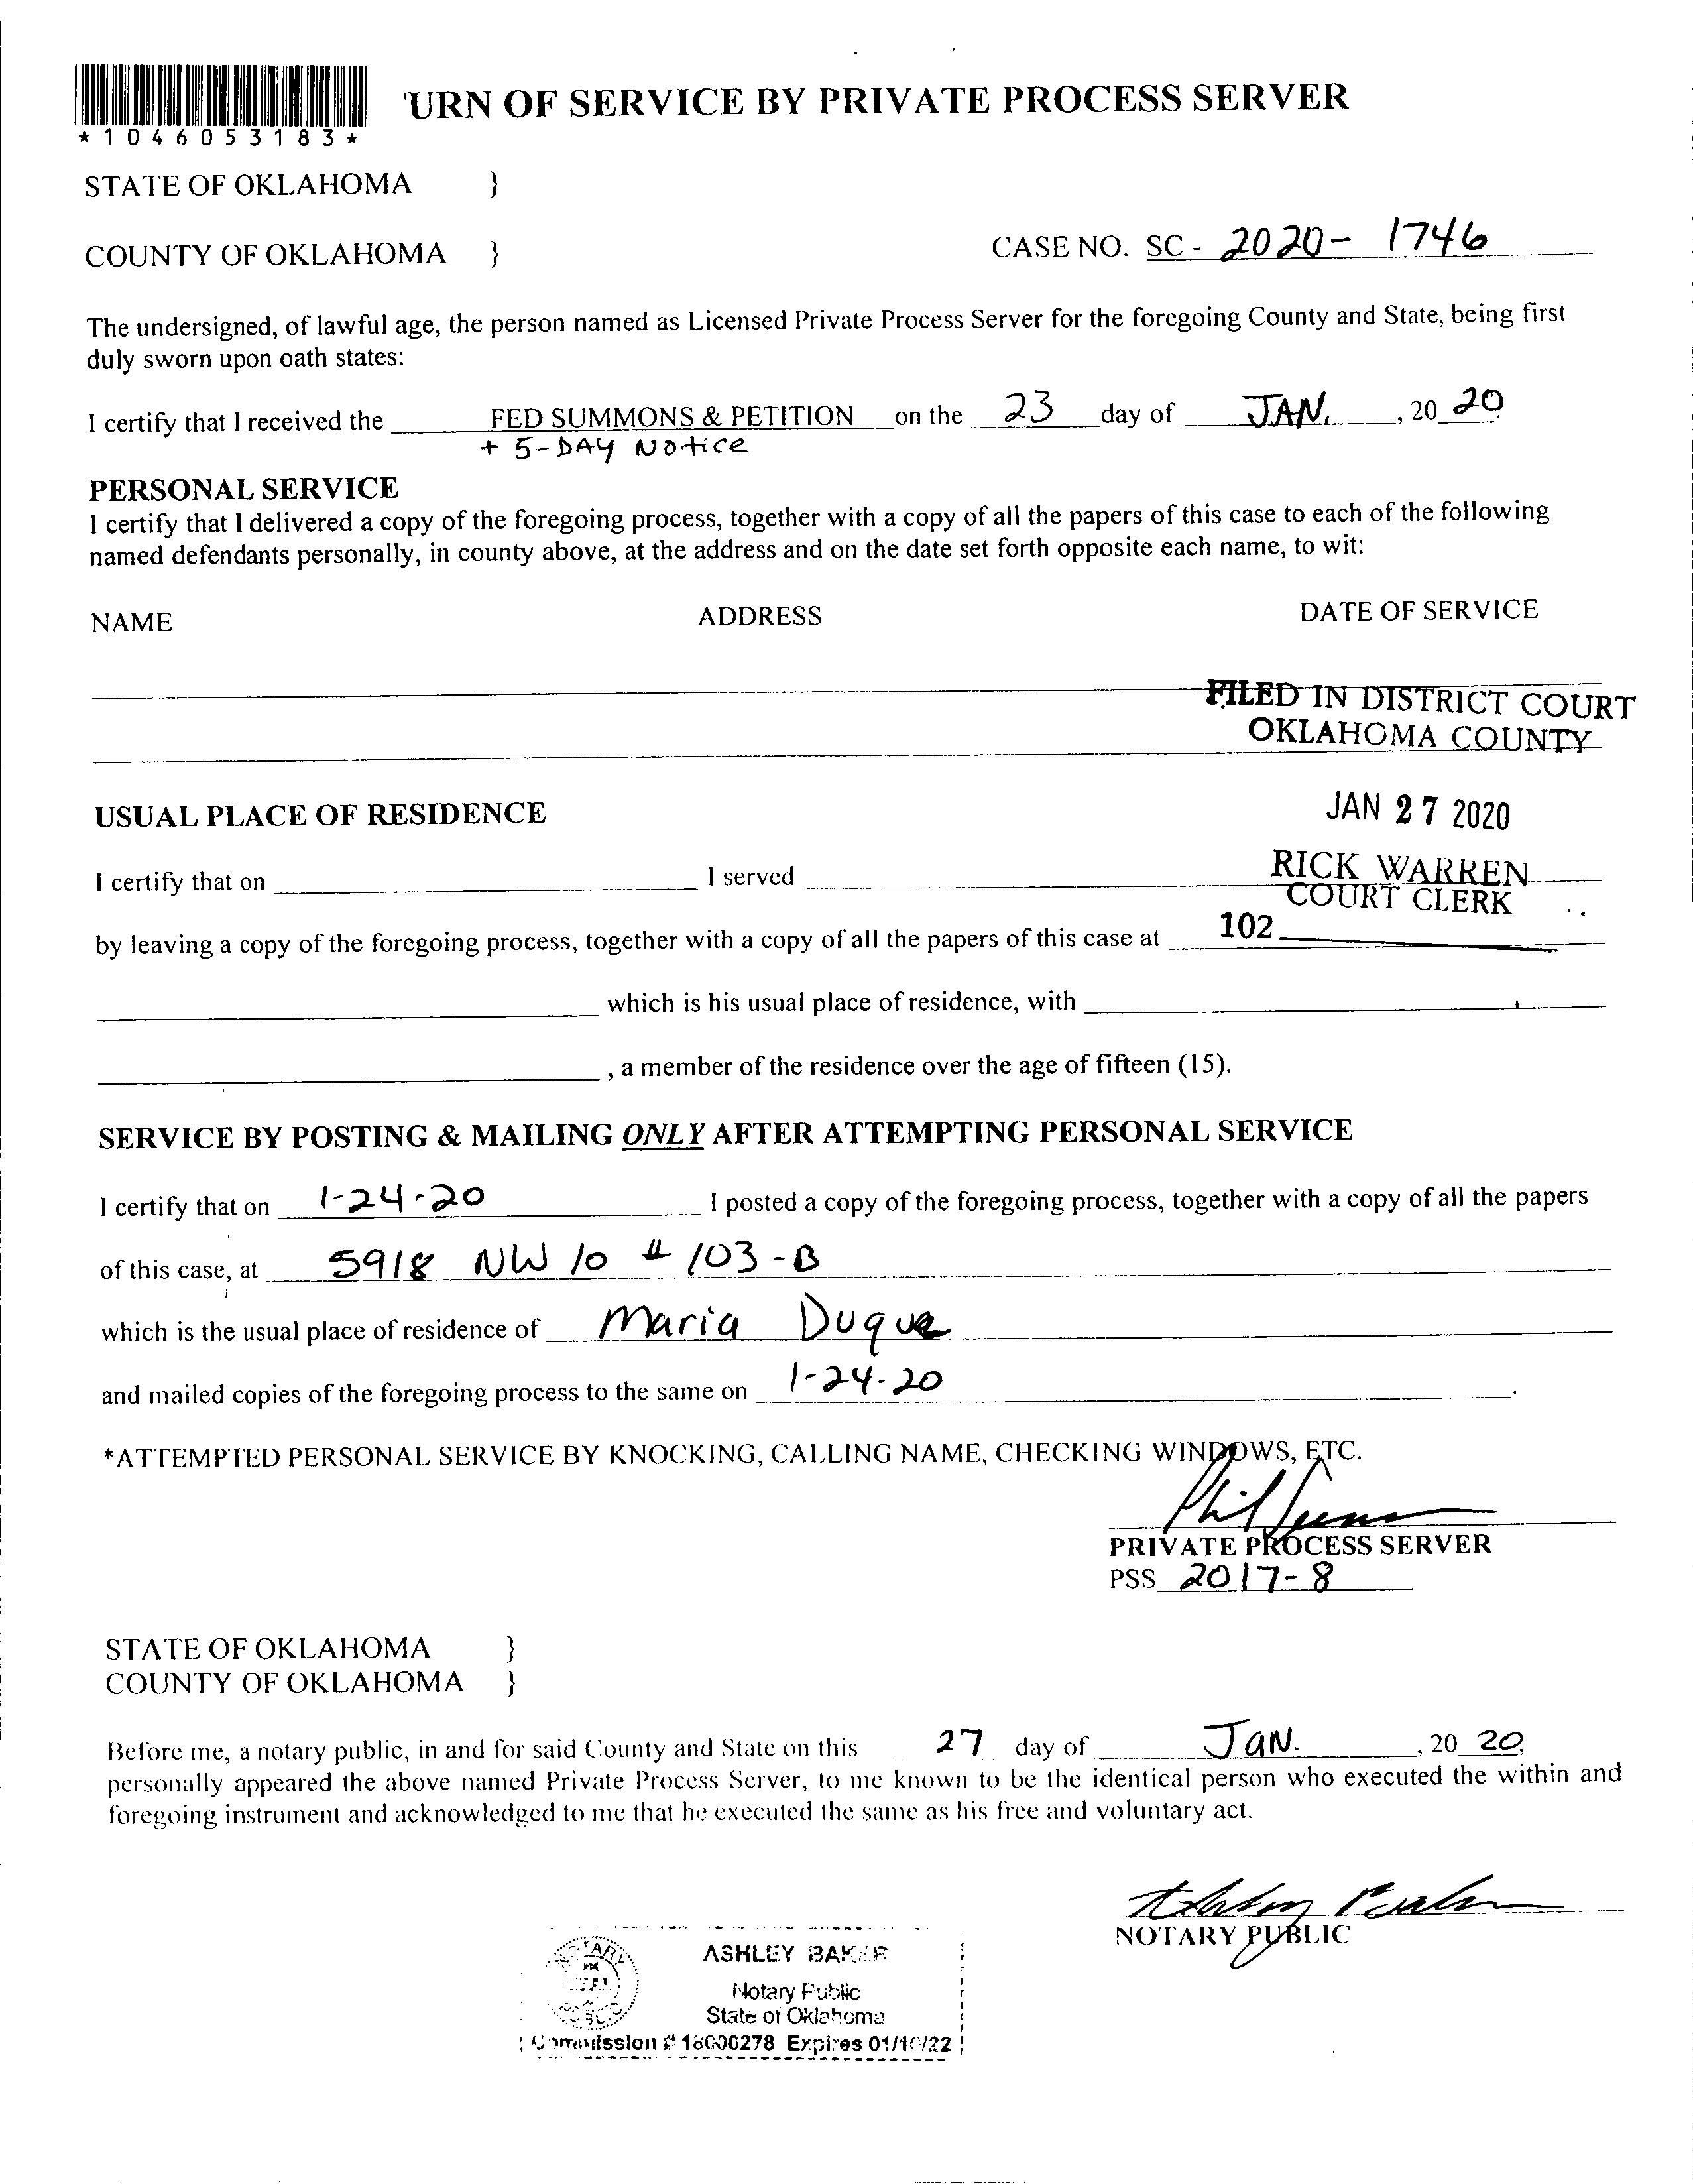 'URN OF SERVICE BY PRIVATE PROCESS SERVER
*1046053183*
STATE OF OKLAHOMA }
COUNTY OF OKLAHOMA } CASE NO. SC - 2020 - 1746
The undersigned, of lawful age, the person named as Licensed Private Process Server for the foregoing County and State, being first
duly sworn upon oath states:
I certify that I received the FED SUMMONS & PETITION on the 23 day of JAN. , 20 20
+ 5-DAY Notice
PERSONAL SERVICE
I certify that I delivered a copy of the foregoing process, together with a copy of all the papers of this case to each of the following
named defendants personally, in county above, at the address and on the date set forth opposite each name, to wit:
NAME ADDRESS DATE OF SERVICE
FILED IN DISTRICT COURT
OKLAHOMA COUNTY
USUAL PLACE OF RESIDENCE JAN 27 2020
I certify that on I served RICK WARREN
COURT CLERK
by leaving a copy of the foregoing process, together with a copy of all the papers of this case at 102
which is his usual place of residence, with
, a member of the residence over the age of fifteen (15).
SERVICE BY POSTING & MAILING ONLY AFTER ATTEMPTING PERSONAL SERVICE
I certify that on 1-24-20 I posted a copy of the foregoing process, together with a copy of all the papers
of this case, at 5918 NW 10 # 103-B
which is the usual place of residence of Maria Duque
and mailed copies of the foregoing process to the same on 1-24-20 .
*ATTEMPTED PERSONAL SERVICE BY KNOCKING, CALLING NAME, CHECKING WINDOWS, ETC.
Phil
PRIVATE PROCESS SERVER
PSS 2017-8
STATE OF OKLAHOMA }
COUNTY OF OKLAHOMA }
Before me, a notary public, in and for said County and State on this 27 day of Jan. , 20 20,
personally appeared the above named Private Process Server, to me known to be the identical person who executed the within and
foregoing instrument and acknowledged to me that he executed the same as his free and voluntary act.
NOTARY PUBLIC
ASHLEY BAKER
Notary Public
State of Oklahoma
Commission # 18000278 Expires